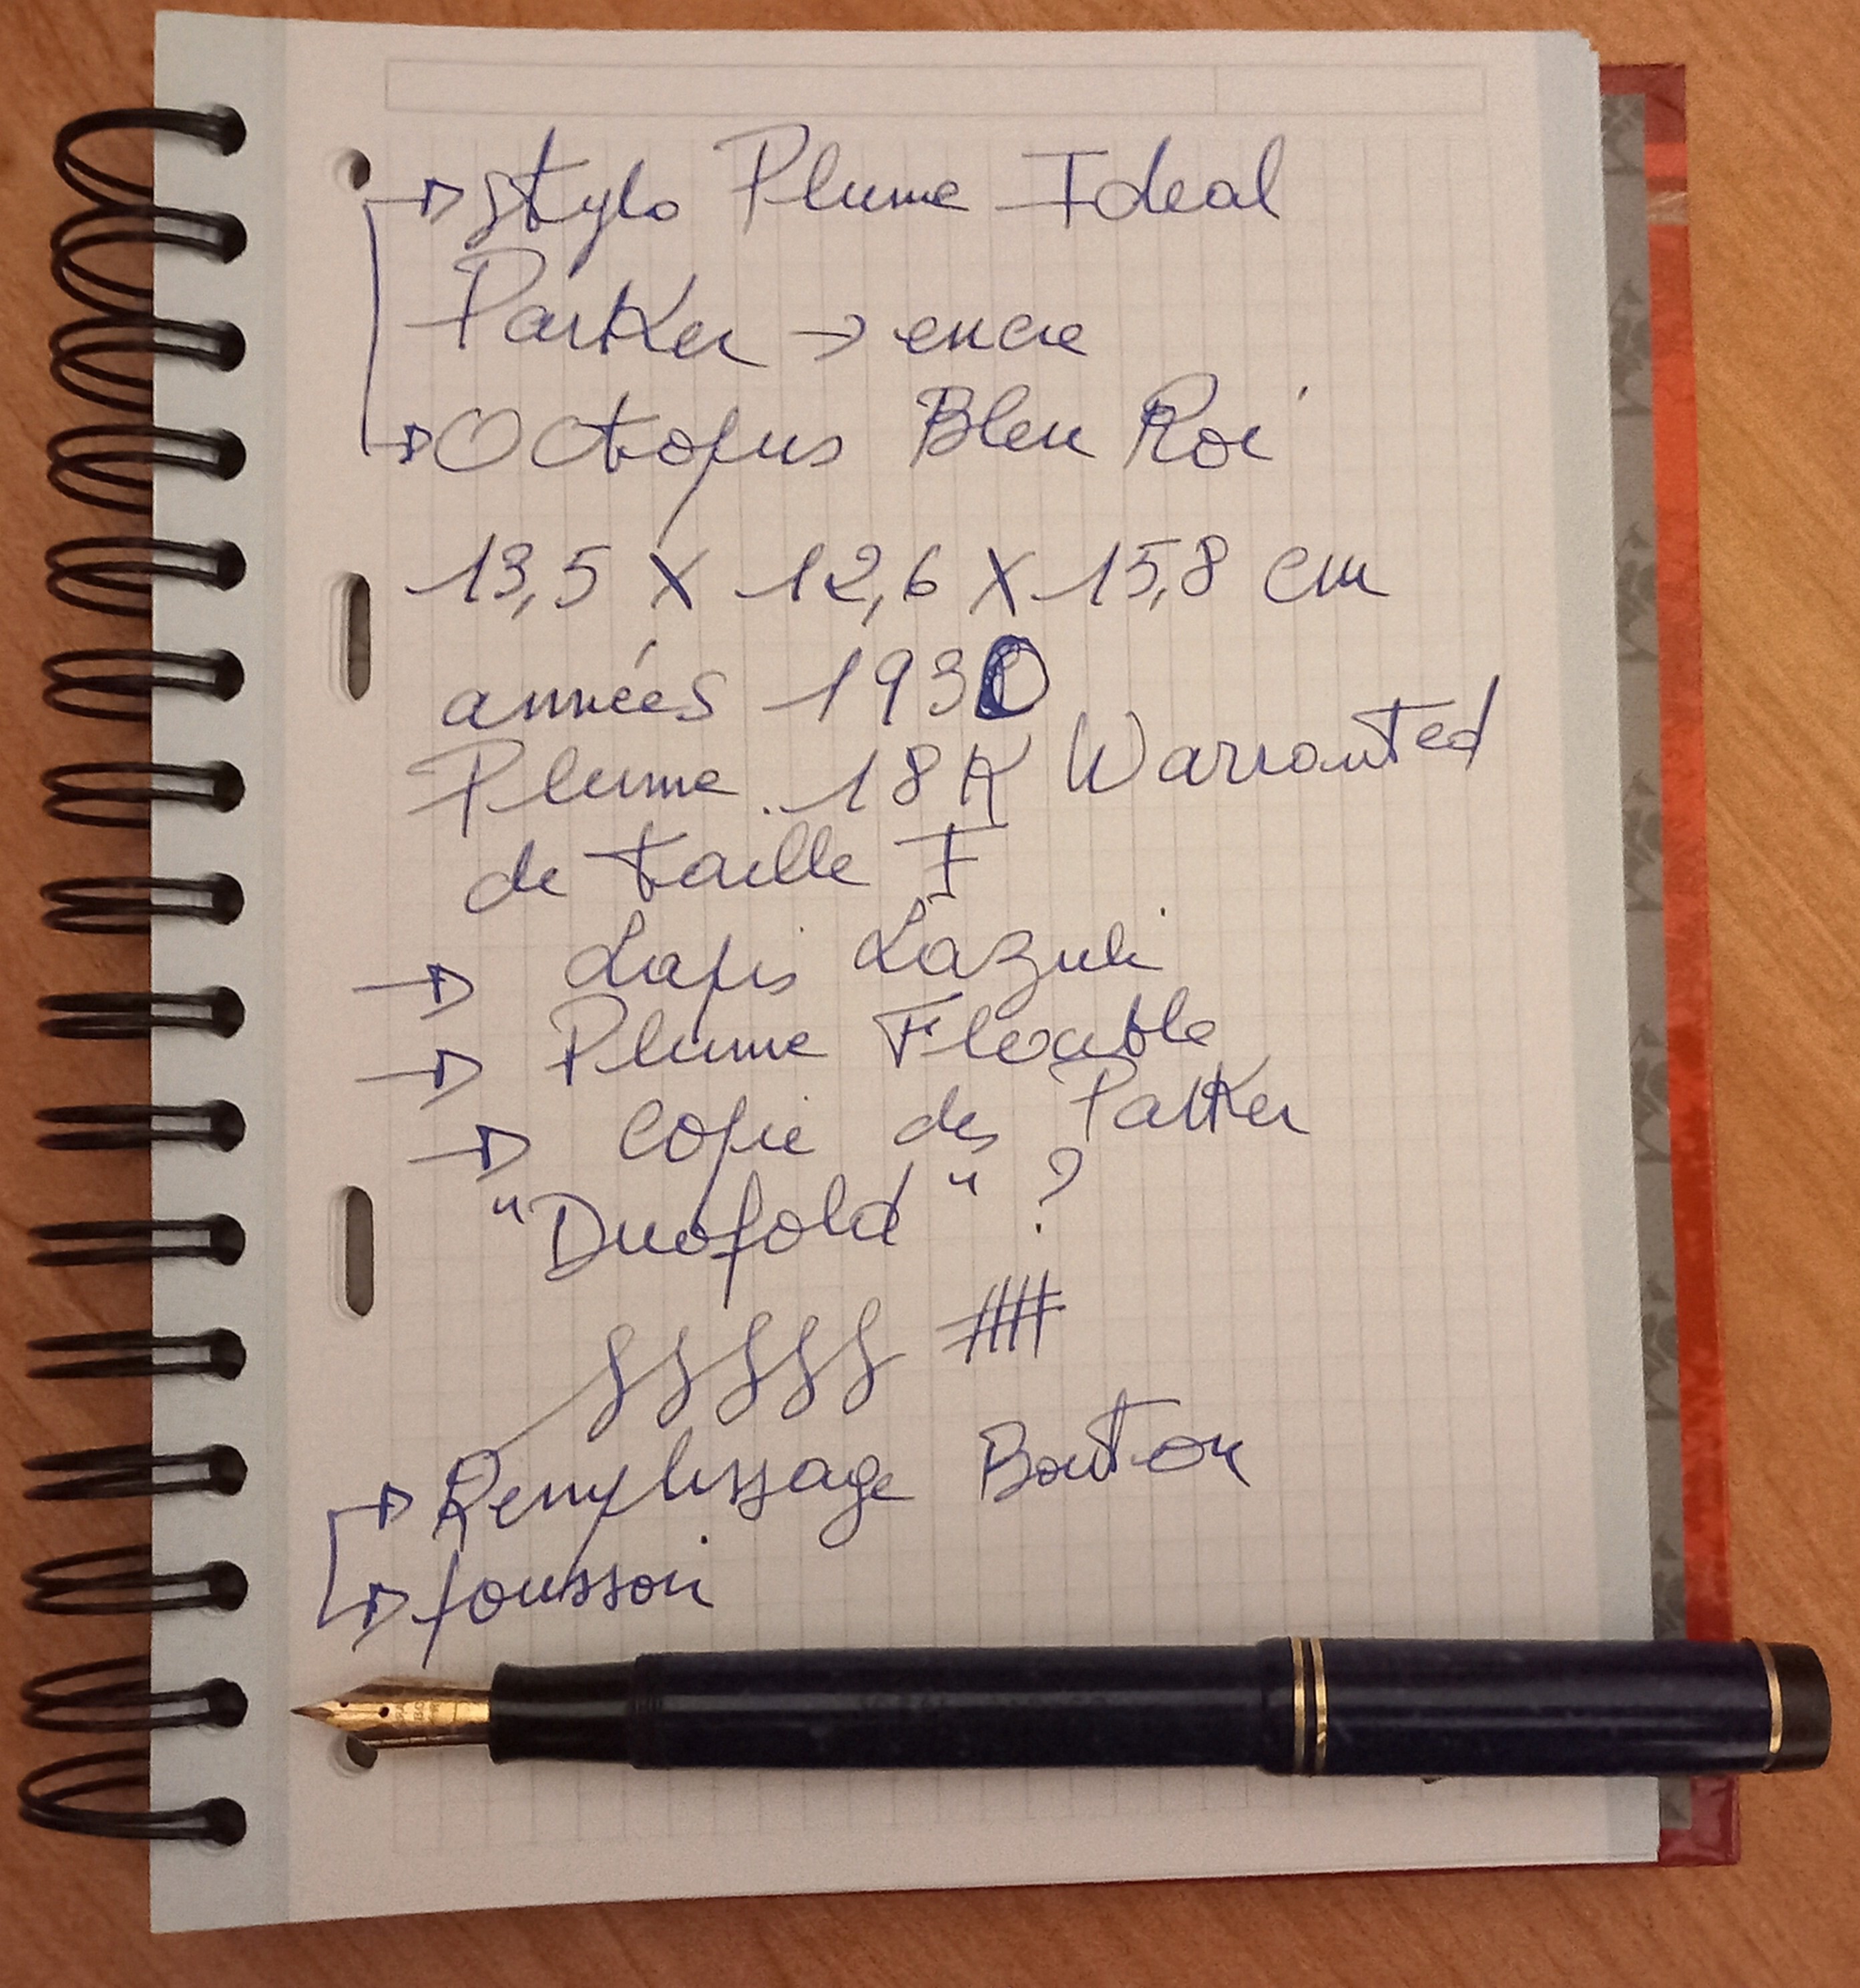 → Stylo Plume Ideal
Parker → encre
→ Octopus Bleu Roi
13,5 X 12,6 X 15,8 cm
années 1930
Plume 18K Warranted
de taille F
→ Lapis Lazuli
→ Plume Flexible
→ Copie des Parker
"Duofold" ?
→ Remplissage Bouton
→ poussoir